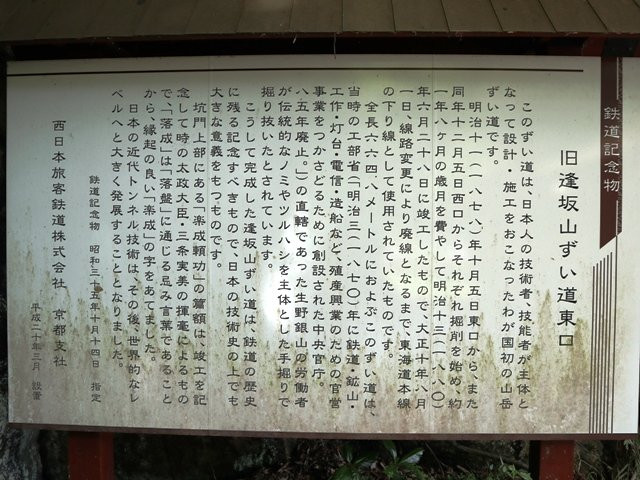 鉄道記念物
旧逢坂山ずい道東口
このずい道は、日本人の技術者、技能者が主体と
なって設計・施工をおこなったわが国初の山岳
ずい道です。
明治十一（一八七八）年十月五日東口からまた
同年十二月五日西口からそれぞれ掘削を始め、約
一年八ヶ月の歳月を費やして明治十三（一八八〇）
年六月二十八日に竣工したもので、大正十年八月
一日、線路変更により廃線となるまで、東海道本線
の下り線として使用されていたものです。
全長六六四・八メートルにおよぶこのずい道は、
当時の工部省（「明治三（一八七〇）年に鉄道・鉱山・
工作・灯台・電信・造船など、殖産興業のための官営
事業をつかさどるために創設された中央官庁。
八五年廃止。」）の直轄であった生野銀山の労働者
が伝統的なノミやツルハシを主体とした手掘りで
掘り抜いたとされています。
こうして完成した逢坂山ずい道は、鉄道の歴史
に残る記念すべきもので、日本の技術史の上でも
大きな意義をもつものです。
坑門上部にある「楽成頼功」の篇額は、竣工を記
念して時の太政大臣・三条実美の揮毫によるもの
で、「落成」は「落盤」に通じる忌み言葉であること
から、縁起の良い「楽成」の字をあてました。
日本の近代トンネル技術は、その後、世界的なレ
ベルへと大きく発展することとなりました。
鉄道記念物　昭和三十五年十月十四日　指定
西日本旅客鉄道株式会社　京都支社
平成二十年三月　設置